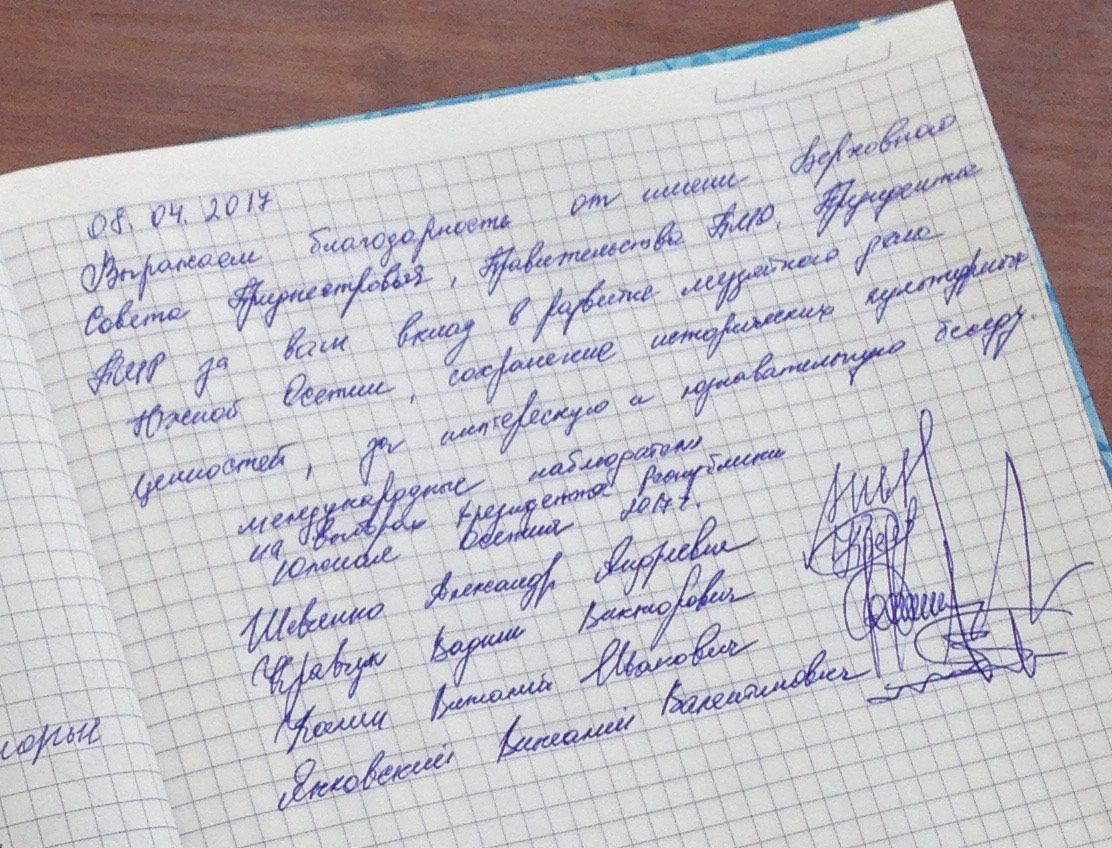 08.04.2017
Выражаем благодарность от имени Верховного
Совета Приднестровья, Правительства ПМР, Президента
ПМР за ваш вклад в развитие музейного дела
Южной Осетии, сохранение исторических культурных
ценностей, за интересную и познавательную беседу.
международные наблюдатели
на выборах президента Республики
Южная Осетия 2017 г.
Шевченко Александр Андреевич
Кравчук Вадим Викторович
Виталий Иванович
Янковский Виталий Валентинович